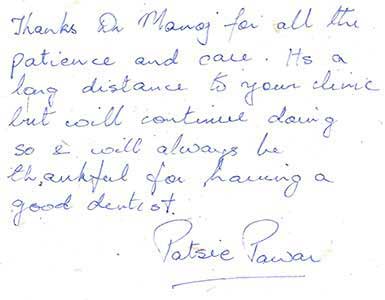 Thanks Dr Manoj for all the
patience and care. Its a
long distance to your clinic
but will continue doing
so & will always be
thankful for having a
good dentist.
Patsie Pawar